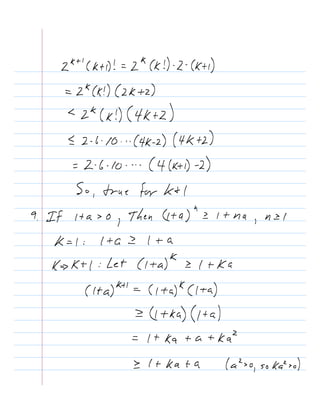 2^{k+1}(k+1)! = 2^k(k!)·2·(k+1)
= 2^k(k!)(2k+2)
< 2^k(k!)(4k+2)
≤ 2·6·10···(4k-2)(4k+2)
= 2·6·10····(4(k+1)-2)
So, true for k+1
9. If 1+a>0, Then (1+a)^n ≥ 1+na, n≥1
K=1: 1+a ≥ 1+a
K⇒K+1: Let (1+a)^k ≥ 1+ka
(1+a)^{k+1} = (1+a)^k(1+a)
≥ (1+ka)(1+a)
= 1+ka+a+ka²
≥ 1+ka+a (a²>0, so ka²>0)